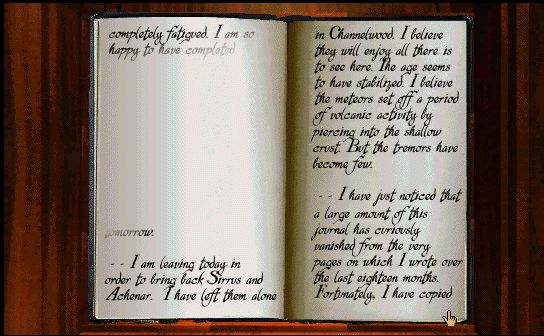 completely fatigued. I am so
happy to have completed
tomorrow.
-- I am leaving today in
order to bring back Sirrus and
Achenar. I have left them alone
in Channelwood. I believe
they will enjoy all there is
to see here. The age seems
to have stabilized. I believe
the meteors set off a period
of volcanic activity by
piercing into the shallow
crust. But the tremors have
become few.
-- I have just noticed that
a large amount of this
journal has curiously
vanished from the very
pages on which I wrote over
the last eighteen months.
Fortunately, I have copied